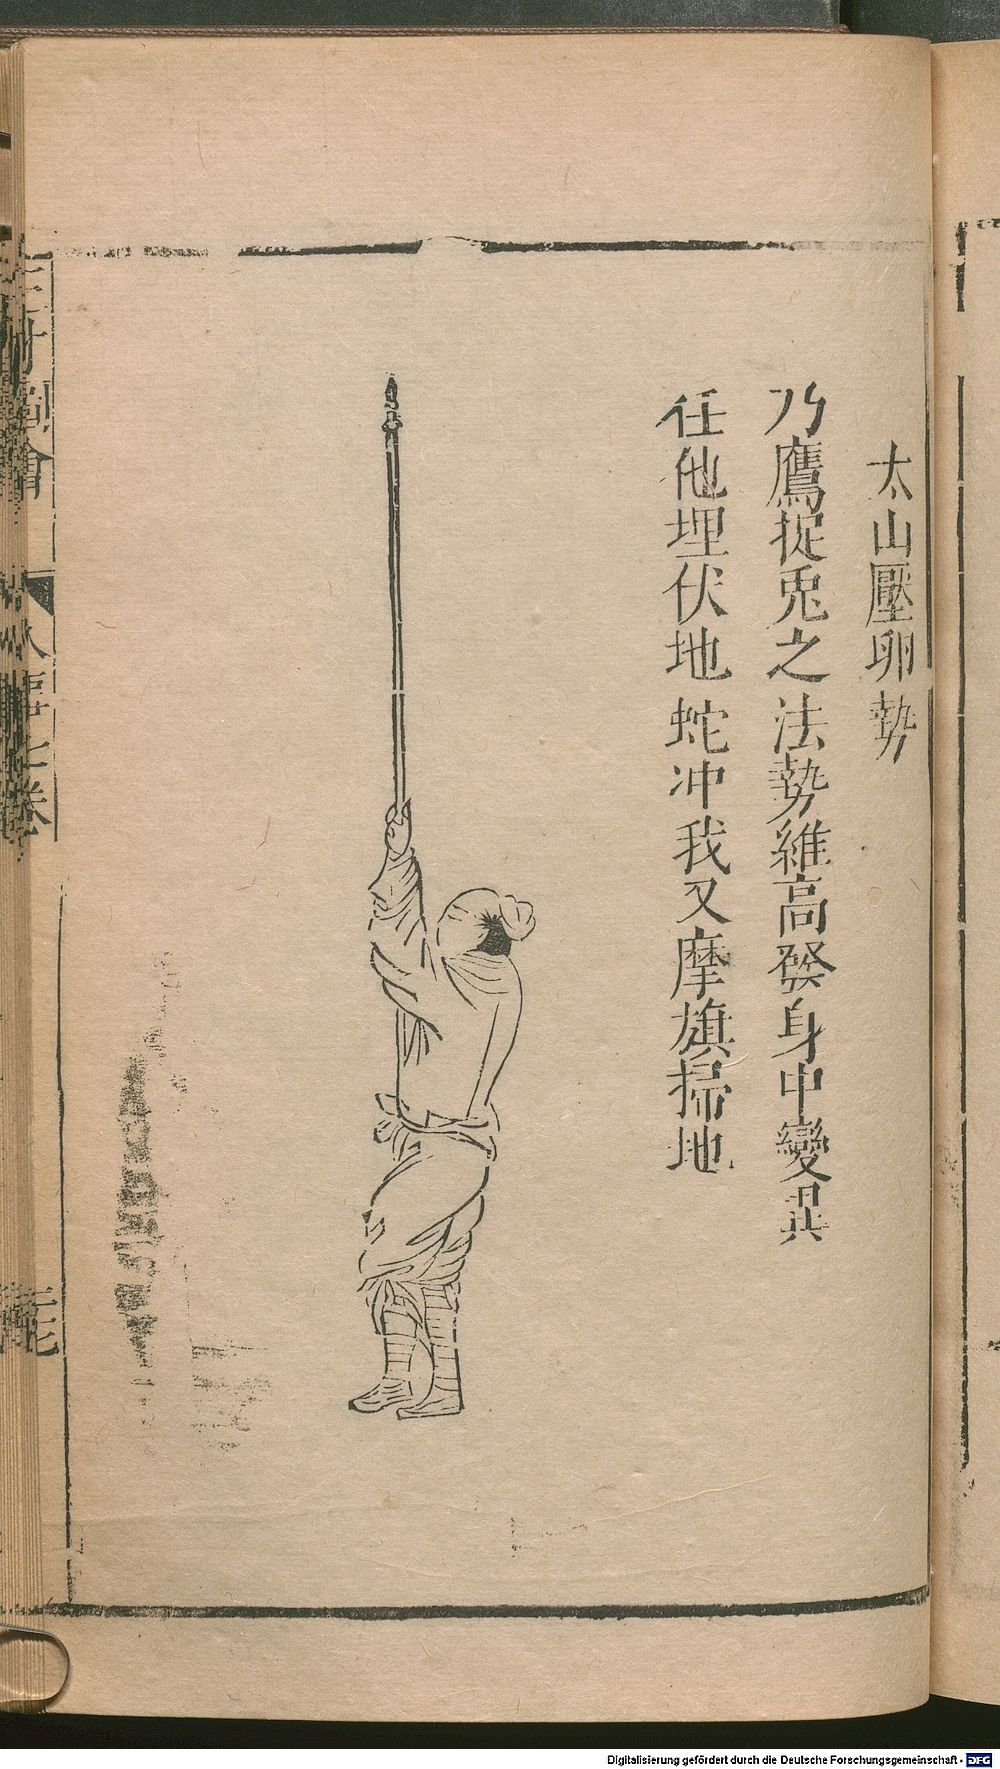 太山壓卵勢
乃鷹捉兎之法勢維高發身中變異
任他埋伏地蛇冲我又摩旗掃地
三才圖會
人事七卷
Digitalisierung gefördert durch die Deutsche Forschungsgemeinschaft - DFG